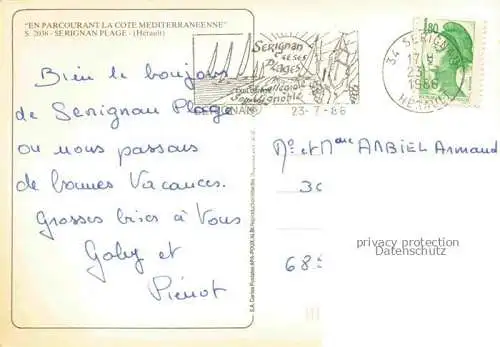 "EN PARCOURANT LA COTE MEDITERRANEENNE"
S. 2036 - SERIGNAN PLAGE - (Hérault)
Bien le bonjour
de Serignan Plage
ou nous passons
de bonnes Vacances.
Grosses bises à Vous
Gaby et
Pierrot
Serignan
SES
Plages
Son Vignoble
SERIGNAN
23-7-86
34 SERIGNAN
17 H
23
1986
HERAULT
1,80
Mr et Mme ARBIEL Armand
30
68
privacy protection
Datenschutz